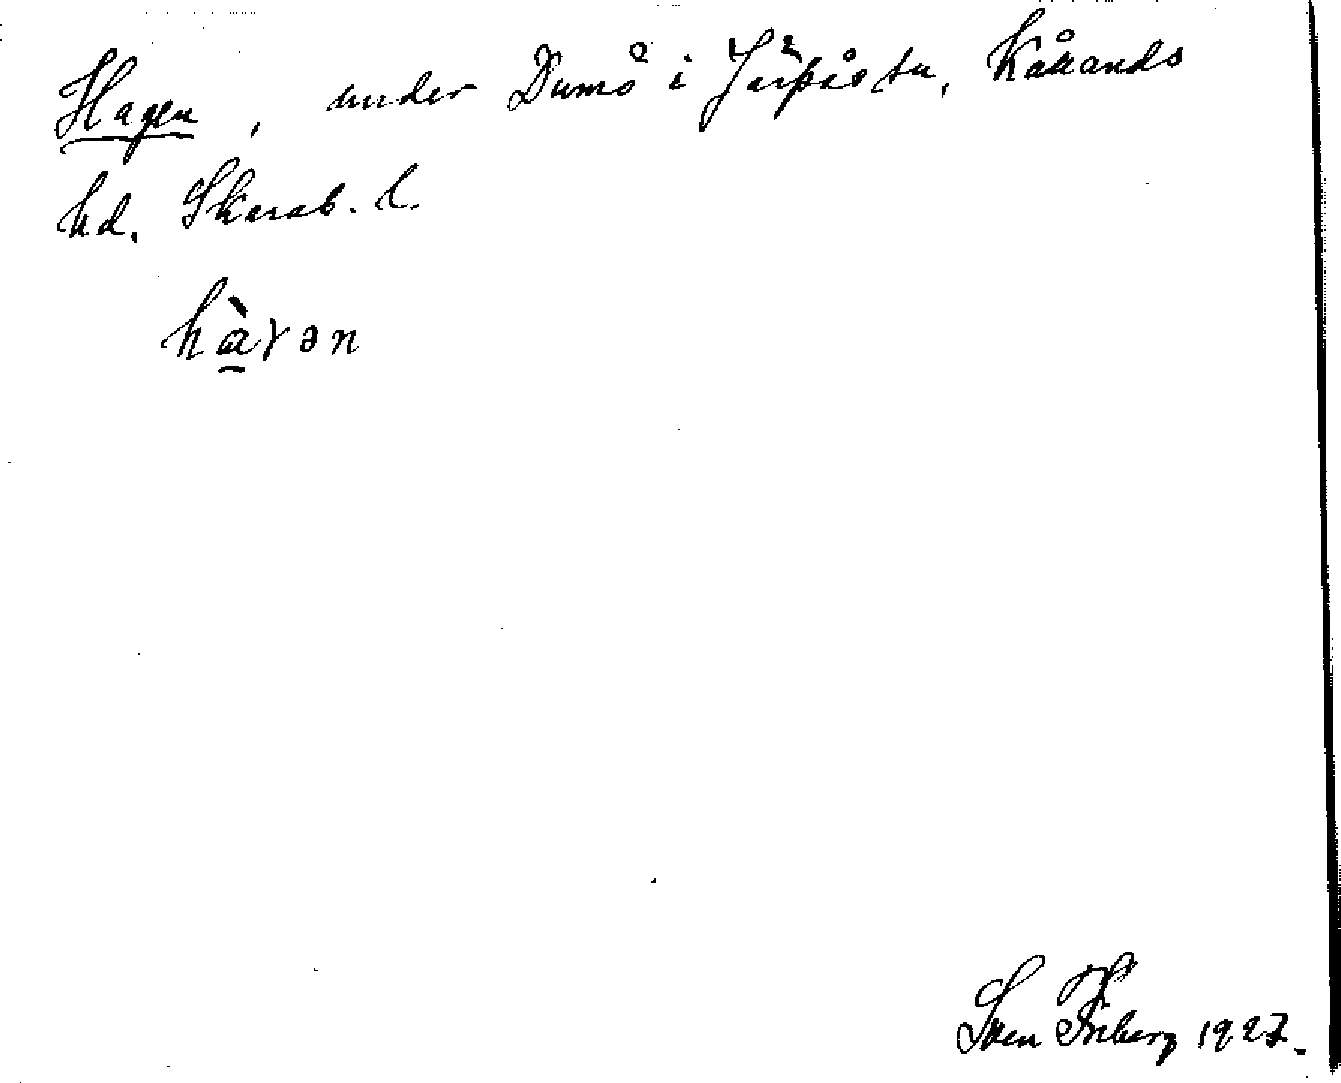 Hagen, under Dumö i Järpås sn, Kållands
hd. Skarab. l.
hàɣən
Sven Friberg 1927.